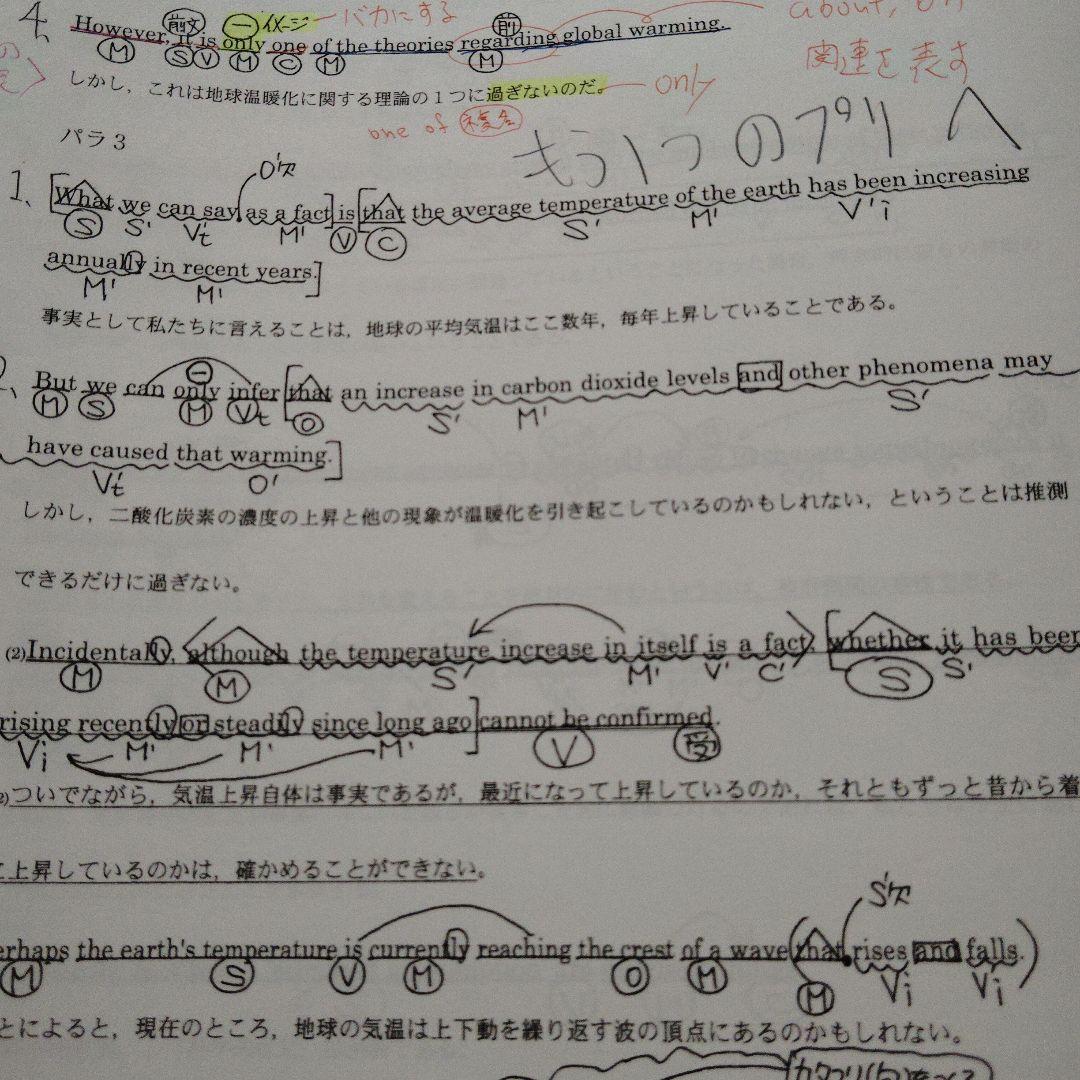 4
前文 ⊖イメージ - バカにする 前 about, on
However, it is only one of the theories regarding global warming.
M S V M C M M 関連を表す
しかし，これは地球温暖化に関する理論の１つに過ぎないのだ。 only
one of 複名
パラ３ もう1つのプリへ
O'欠
1、[What we can say as a fact] is [that the average temperature of the earth has been increasing
S S' Vt' M' V C S' M' V'i
annually in recent years.]
M' M'
事実として私たちに言えることは，地球の平均気温はここ数年，毎年上昇していることである。
⊖
2、But we can only infer [that an increase in carbon dioxide levels and other phenomena may
M S M Vt O S' M' S'
have caused that warming.]
Vt' O'
しかし，二酸化炭素の濃度の上昇と他の現象が温暖化を引き起こしているのかもしれない，ということは推測
できるだけに過ぎない。
(2)Incidentally, 〈although the temperature increase in itself is a fact〉 [whether it has been
M M S' M' V' C' S S'
rising recently or steadily since long ago] cannot be confirmed.
Vi M' M' M' V 受
2)ついでながら，気温上昇自体は事実であるが，最近になって上昇しているのか，それともずっと昔から着
に上昇しているのかは，確かめることができない。
S'欠
erhaps the earth's temperature is currently reaching the crest of a wave (that rises and falls.)
M S V M O M M Vi Vi
とによると，現在のところ，地球の気温は上下動を繰り返す波の頂点にあるのかもしれない。